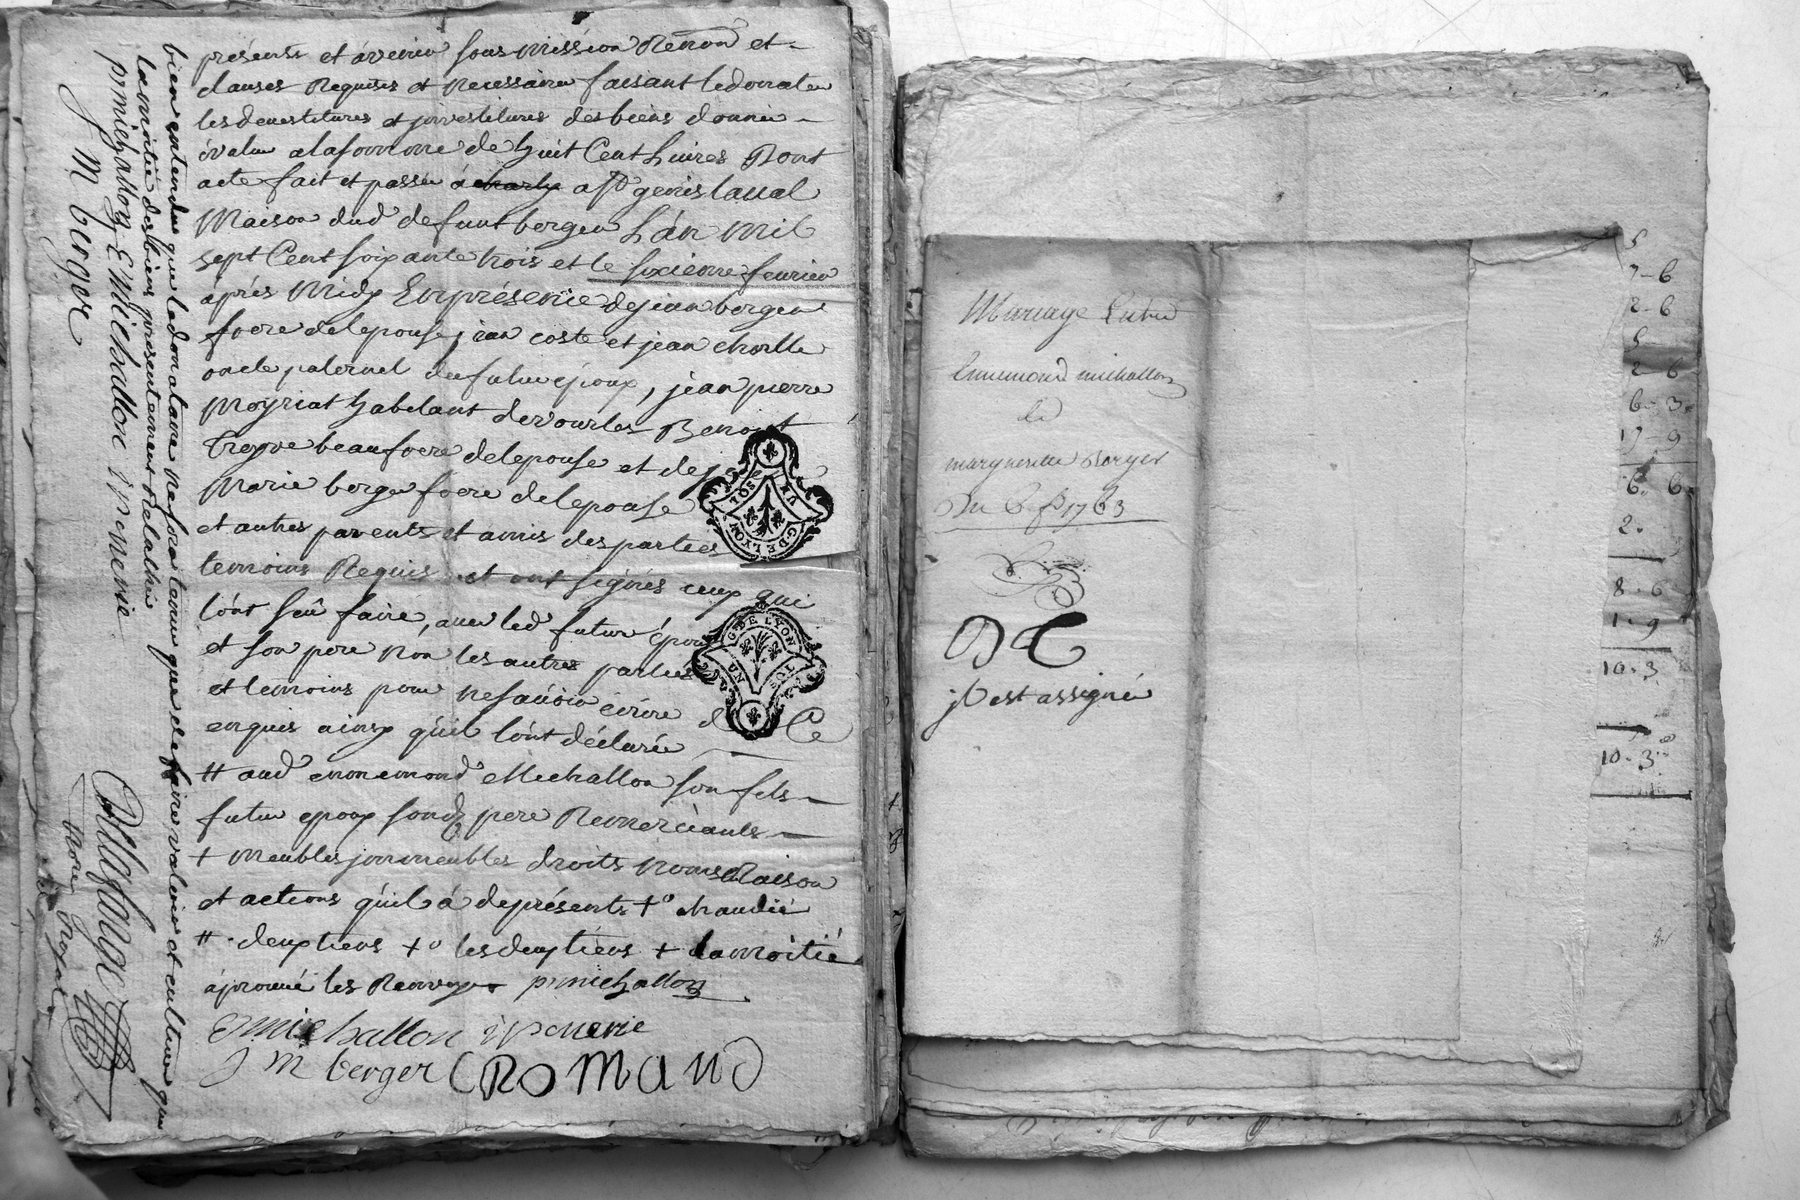 présents et avenir sous mission Renon et
clauses Requises et necessaires faisant ledonateur
les devestitures et jnvestitures des biens donnés
évalués alasomme de huit Cent Livres Dont
acte fait et passé à charly a st genis laval
Maison dud defunt berger L'an Mil
sept Cent soixante trois et le sixieme fevrier
après Midy En présence de jean berger
frere delepouse, jean coste et jean
oncle paternel du futur époux, jean pierre
Moyriat habitant de vourles Benoit
beaufrere delepouse et de
Marie berger frere delepouse
et autres parents et amis des parties
temoins Requis et ont signés ceux qui
l'ont sçu faire, avec led futur époux
et son pere Non les autres parties
et temoins pour ne savoir écrire de Ce
enquis ainsy qu'il l'ont déclaré
# aud ennemond Michallon son fils
futur epoux sond pere Remerciants
+ Meubles jmmeubles droits noms Raison
et actions qu'il à de présents +o
# deux tiers +o les deux tiers + la moitié
aprouvé les Renvoys p michallon
E michallon
J M berger Romand
bien entendu que ledonataire ne sera tenu que de faire valoir et cultiver que
la moitié des biens présentement Relachés
p michallon E Michallon
J M berger
UN SOL
G. DE LYON
G. DE LYON
UN SOL
Mariage Entre
Ennemond michallon
de
marguerite Berger
Du 6 f 1763
D C
jl est assigné
5
7-6
2-6
5
2-6
6-3
17-9
6-6
2.
8.6
1.9
10.3
10.3